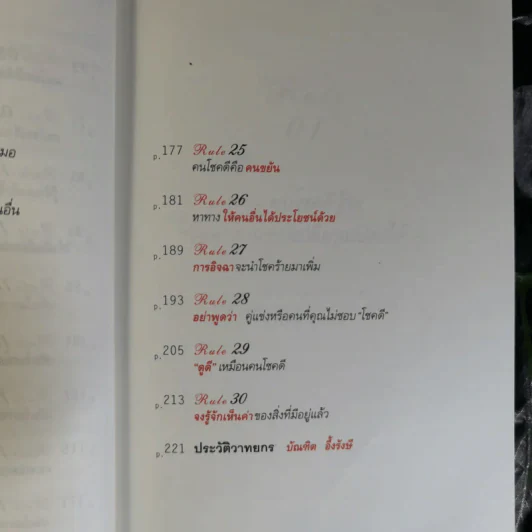 มอ
นอื่น
p.177 Rule 25
คนโชคดีคือ คนขยัน
p.181 Rule 26
หาทาง ให้คนอื่นได้ประโยชน์ด้วย
p.189 Rule 27
การอิจฉา จะนำโชคร้ายมาเพิ่ม
p.193 Rule 28
อย่าพูดว่า คู่แข่งหรือคนที่คุณไม่ชอบ "โชคดี"
p.205 Rule 29
"ดูดี" เหมือนคนโชคดี
p.213 Rule 30
จงรู้จักเห็นค่า ของสิ่งที่มีอยู่แล้ว
p.221 ประวัติวาทยกร บัณฑิต อึ้งรังษี